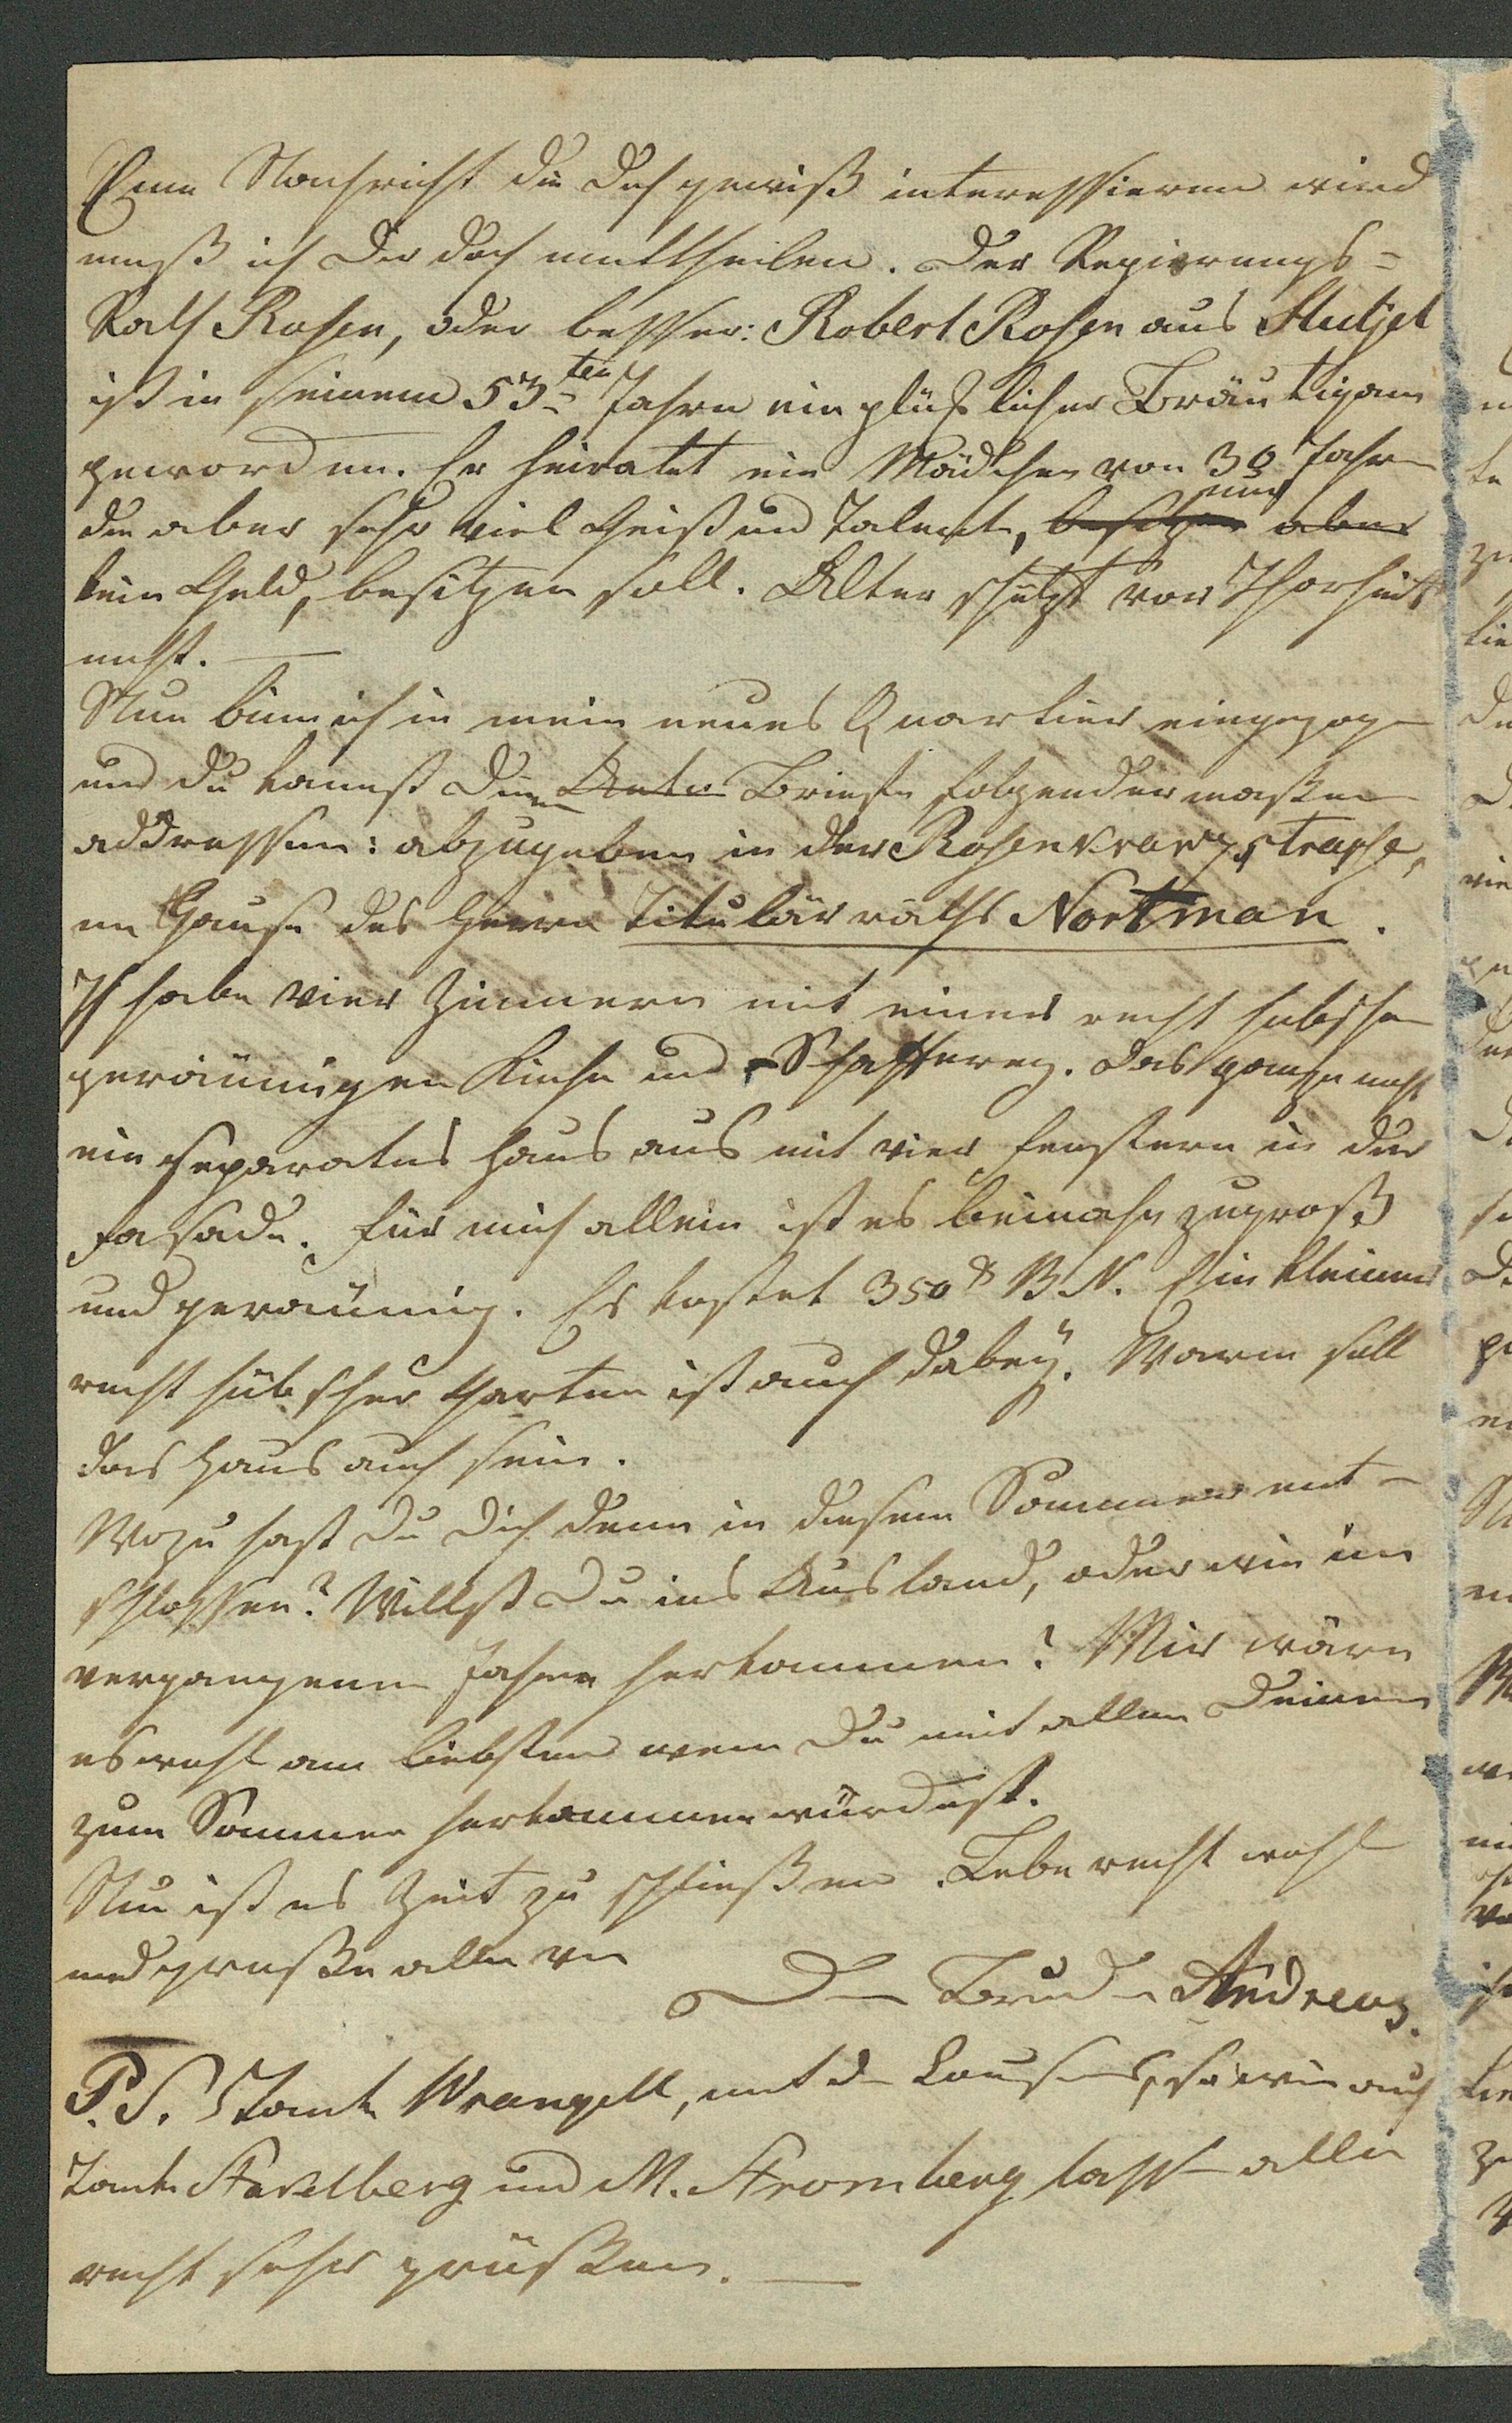 Eine Nachricht die Dich gewiß interessieren wird
muß ich Dir doch mittheilen. Der Regierungs=
Rath Rosen, oder besser: Robert Rosen aus
ist in seinem 53ten Jahre ein glüklicher Bräutigam
geworden. Er heiratet ein Mädchen von 30 Jahren
die aber sehr viel Geist und Talente, besitzen aber nur
kein Geld, besitzen soll. Alter schützt vor Thorheit
nicht. —
Nun binn ich in mein neues Quartier eingezogen
und Du kannst Deine Briefe folgendermaßen
addressen: abzugeben in der Rosenkranzstrasse,
im Hause des Herrn Titulärraths Nortman.
Ich habe vier Zimmern mit einer recht hübschen
geräumigen Küche und Schafferey. Das ganze macht
ein separates Haus aus mit vier Fenstern in der
Fasade. Für mich allein ist es beinahe zu groß
und geräumig. Es kostet 350 R B.N. Ein kleiner
recht hübscher Garten ist auch dabey. Warm soll
das Haus auch sein.
Wozu hast Du Dich denn in diesem Sommer ent-
schlossen? Willst Du ins Ausland, oder wie im
vergangenen Jahre herkommen? Mir wäre
es wohl am liebsten wenn Du mit allen Deinen
zum Sommer herkommen würdest.
Nun ist es Zeit zu schließen. Lebe recht wohl
und grüße alle von
Dein Bruder Andreas.
P.S. Tante Wrangell, mit den so wie auch
Tante Stackelberg und M. Stromberg lassen alle
recht sehr grüßen. —